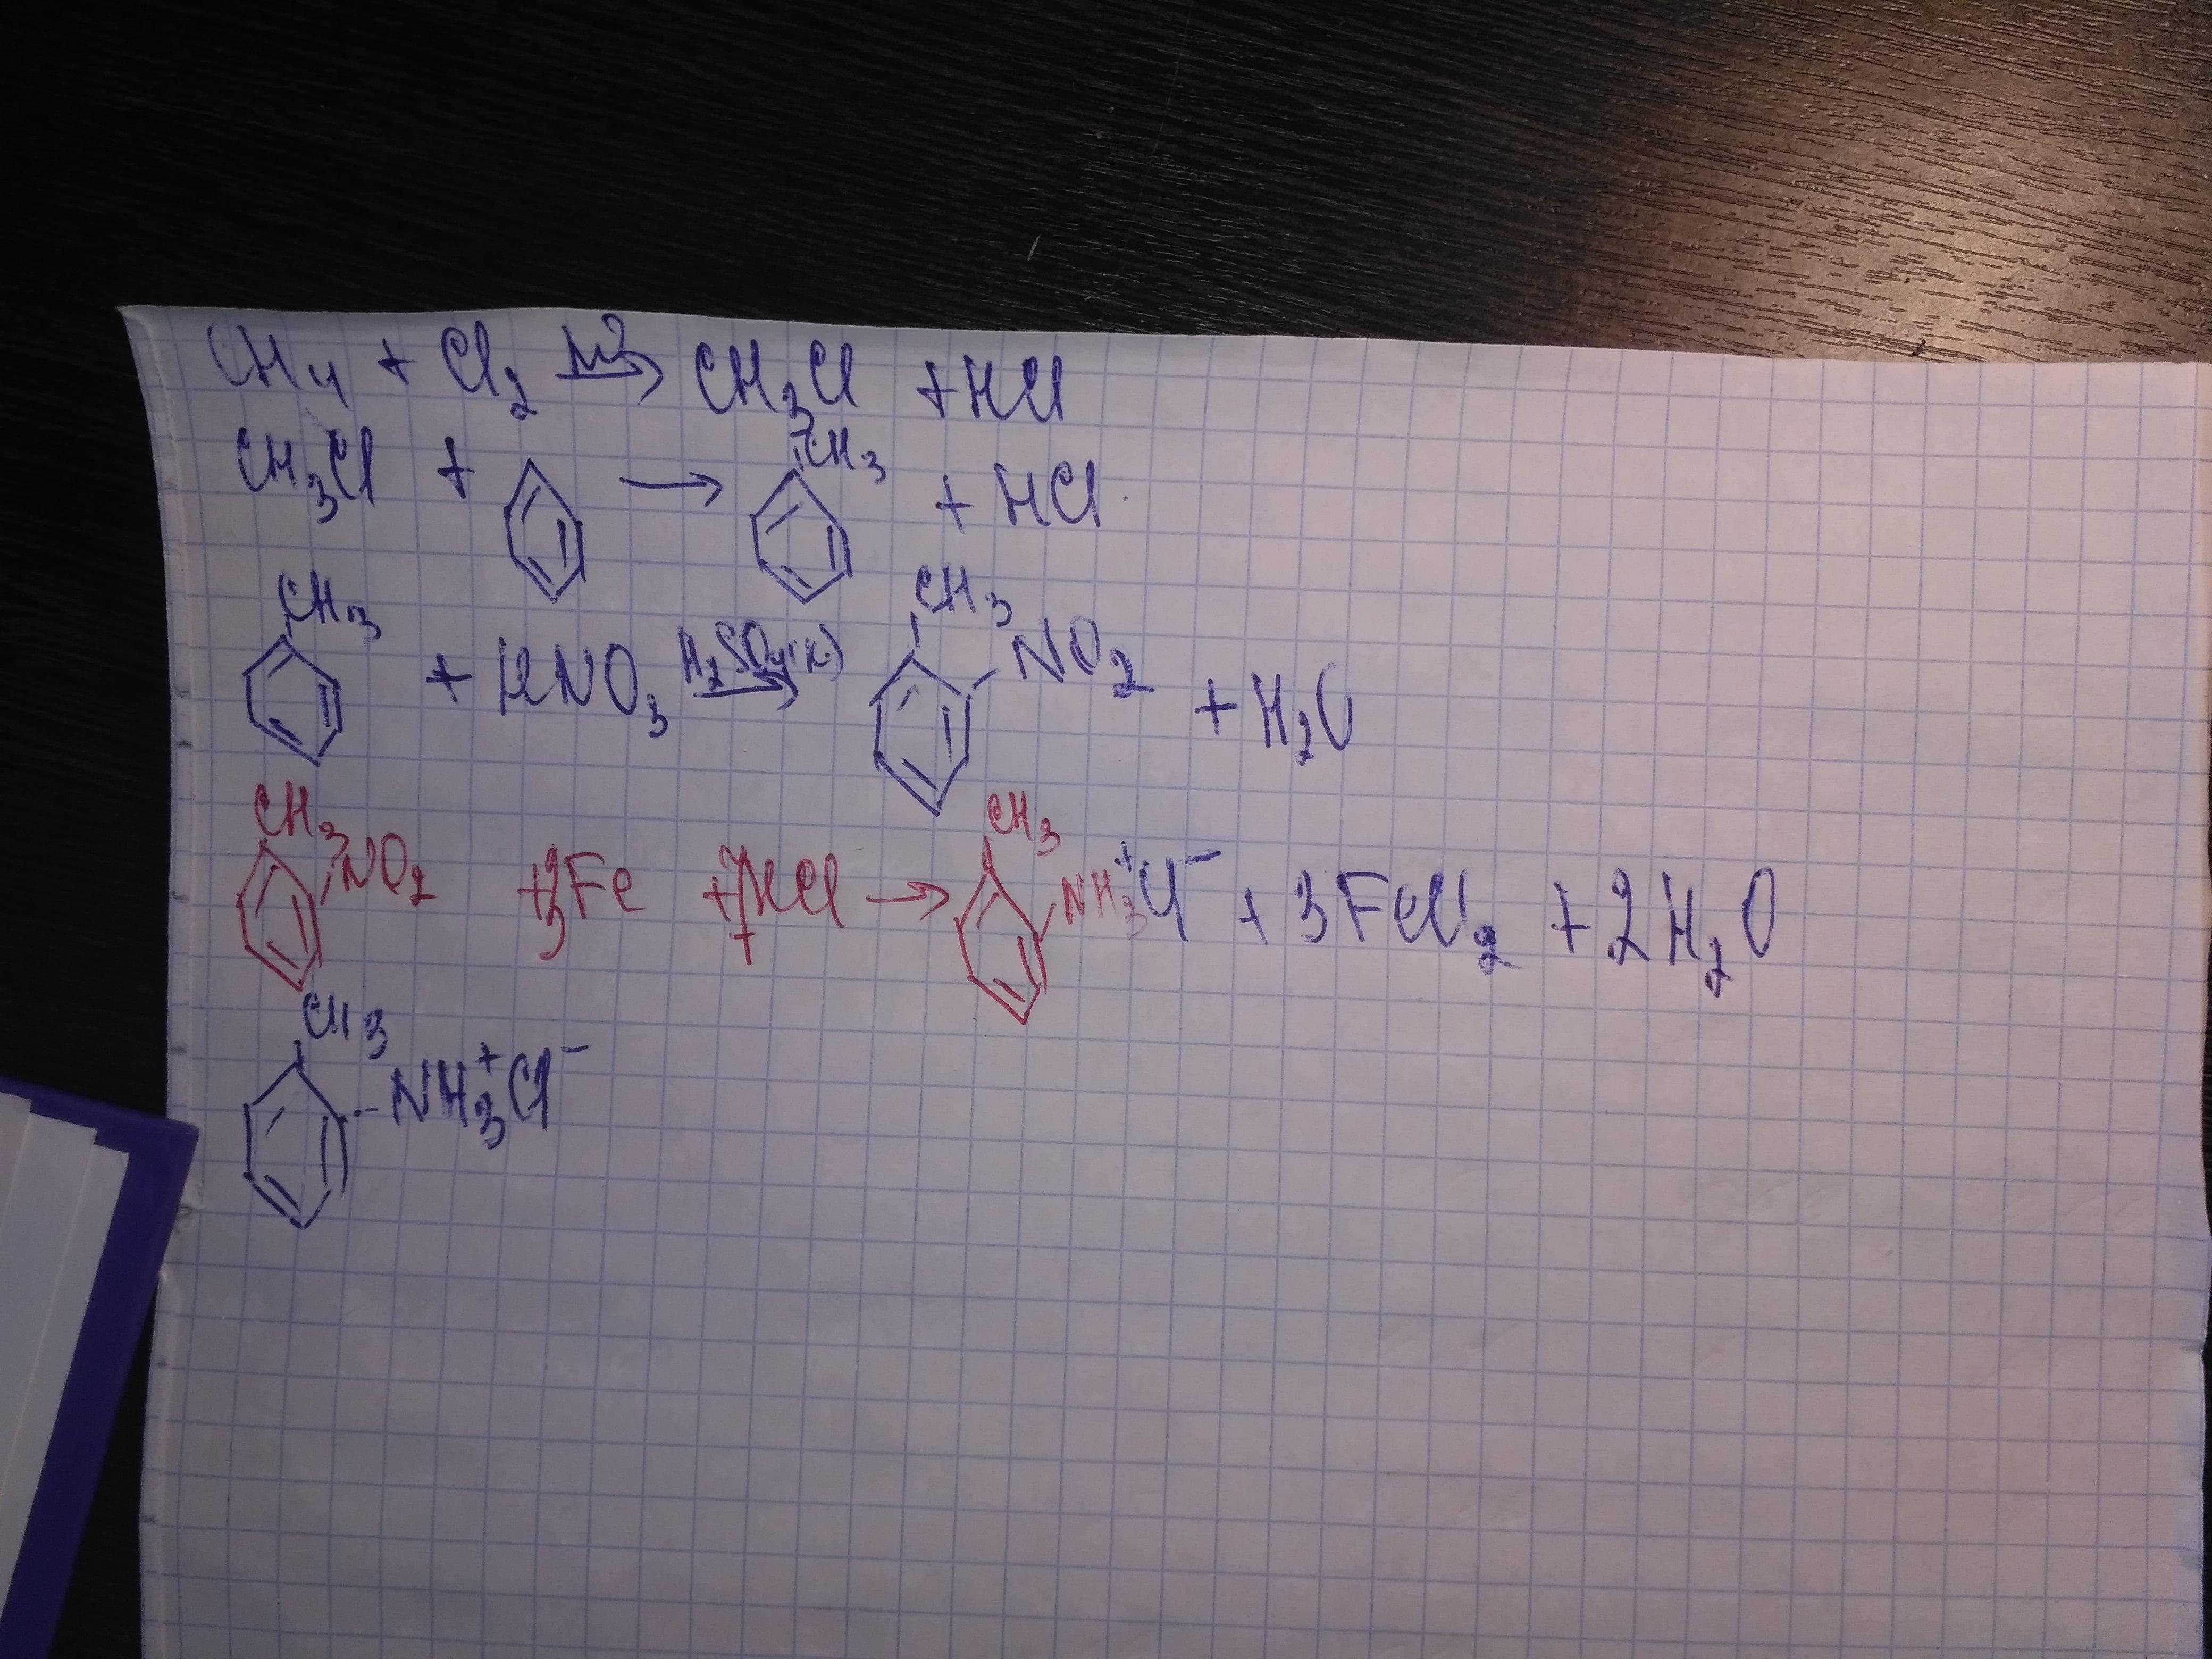 CH4 + Cl2 hν→ CH3Cl + HCl
CH3Cl + → CH3 + HCl
CH3 + HNO3 H2SO4(к)→ CH3 NO2 + H2O
CH3 NO2 + 3Fe + 7HCl → CH3 NH3+Cl- + 3FeCl2 + 2H2O
CH3 NH3+Cl-